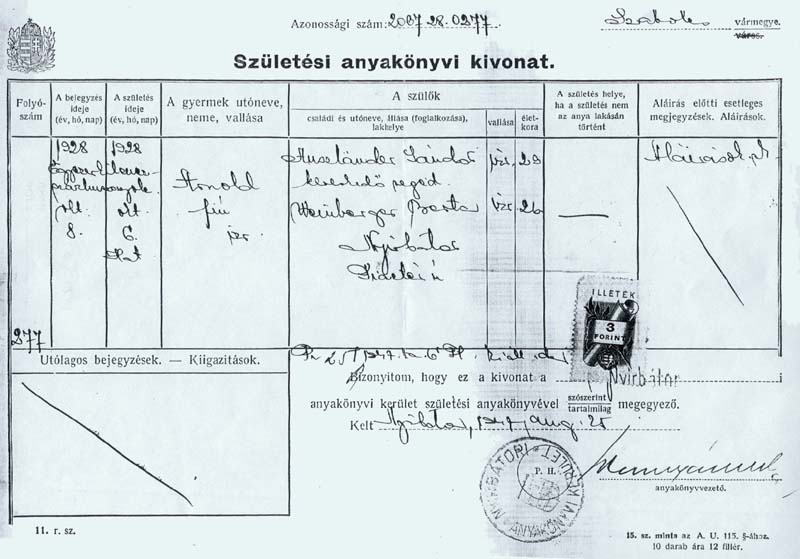 Azonossági szám: 2067 28. 0277
Szabolcs vármegye.
város.
Születési anyakönyvi kivonat.
Folyó-
szám
A bejegyzés
ideje
(év, hó, nap)
A születés
ideje
(év, hó, nap)
A gyermek utóneve,
neme, vallása
A szülők
családi és utóneve, állása (foglalkozása),
lakhelye
vallása
élet-
kora
A születés helye,
ha a születés nem
az anya lakásán
történt
Aláírás előtti esetleges
megjegyzések. Aláírások.
277
1928
okt.
8.
1928
okt.
6.
Hat
Arnold
fiú
izr
Auszländer Sándor izr. 29
kereskedő segéd.
Weinberger Berta izr. 26
Nyírbátor
Aláírások
ILLETÉK
3
FORINT
Utólagos bejegyzések. — Kiigazítások.
Bizonyítom, hogy ez a kivonat a Nyírbátor
anyakönyvi kerület születési anyakönyvével szószerint
tartalmilag megegyező.
Kelt Nyírbátor, 1947 aug. 25
P. H.
NYIRBÁTORI ANYAKÖNYVI KERÜLET
anyakönyvvezető.
11. r. sz.
15. sz. minta az A. U. 115. §-ához.
10 darab ára 12 fillér.